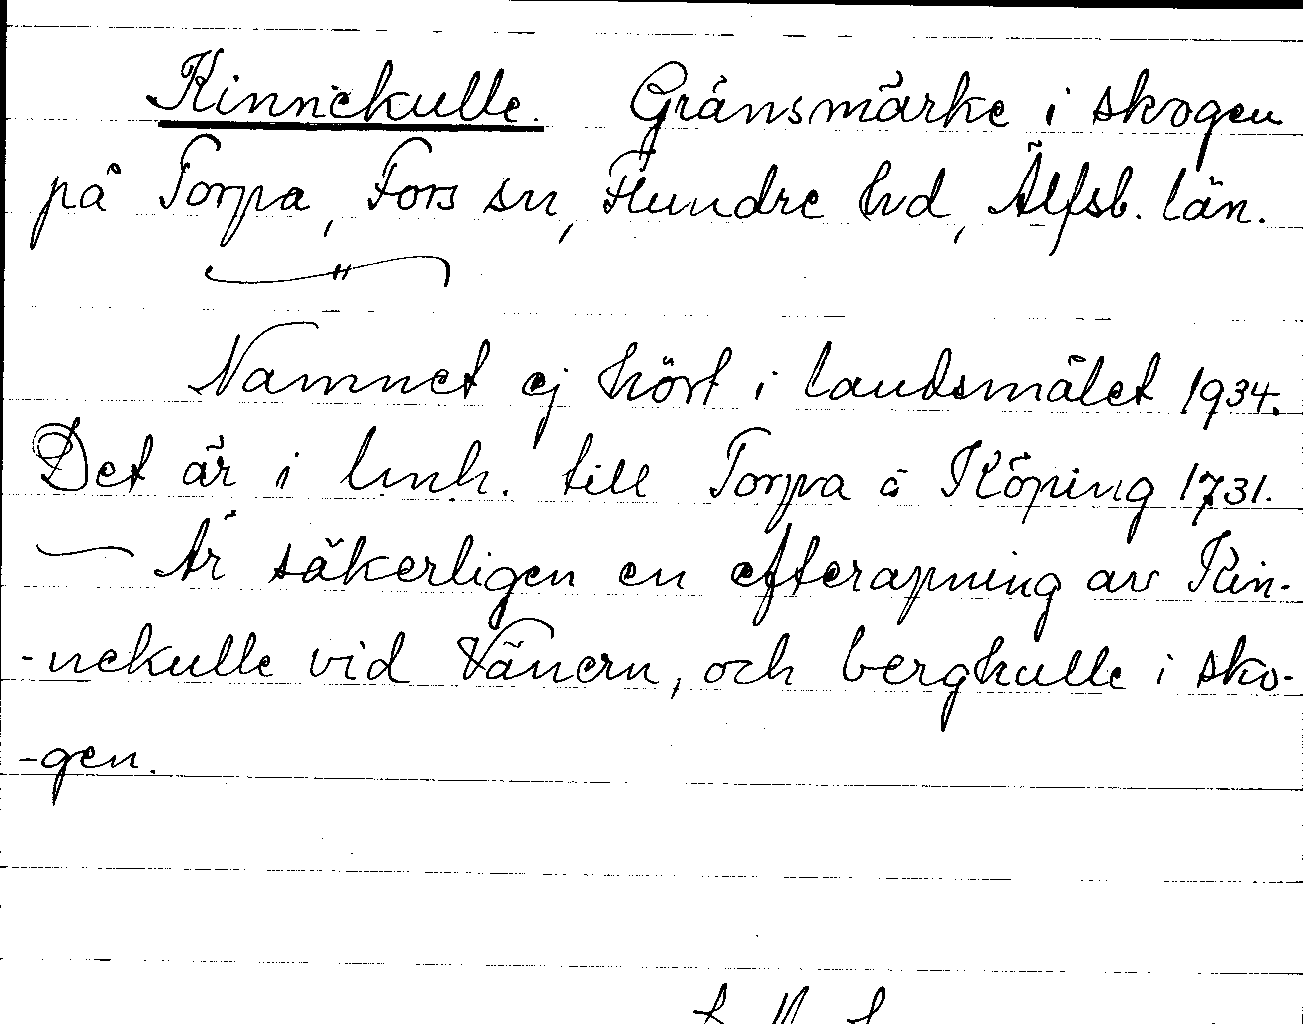 Kinnekulle. Gränsmärke i skogen
på Torpa, Fors sn, Flundre hd, Älfsb. län.
Namnet ej hört i landsmålet 1934.
Det är i lmh. till Torpa å Köping 1731.
— Är säkerligen en efterapning av Kin-
-nekulle vid Vänern, och bergkulle i sko-
-gen.